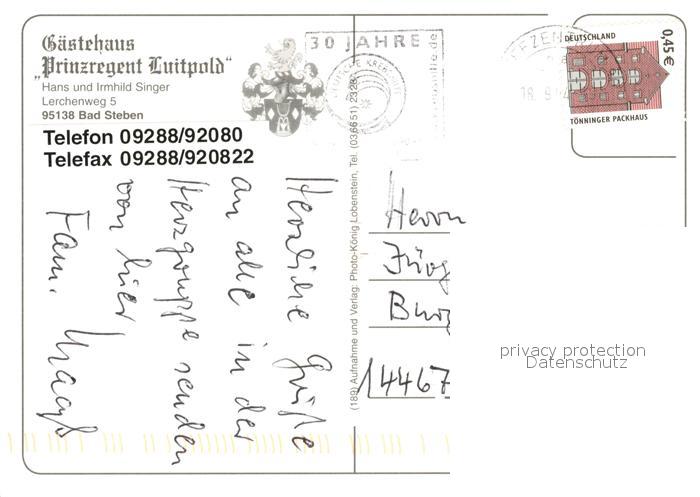 Gästehaus
„Prinzregent Luitpold“
Hans und Irmhild Singer
Lerchenweg 5
95138 Bad Steben
Telefon 09288/92080
Telefax 09288/920822
Herzliche Grüße
an alle in der
Herzgruppe senden
von hier
Fam.
(189) Aufnahme und Verlag: Photo-König Lobenstein, Tel. (036651) 2328
30 JAHRE
DEUTSCHE KREBSHILFE
DEUTSCHLAND
0,45 €
TÖNNINGER PACKHAUS
Herrn
Jürg
14467
privacy protection
Datenschutz